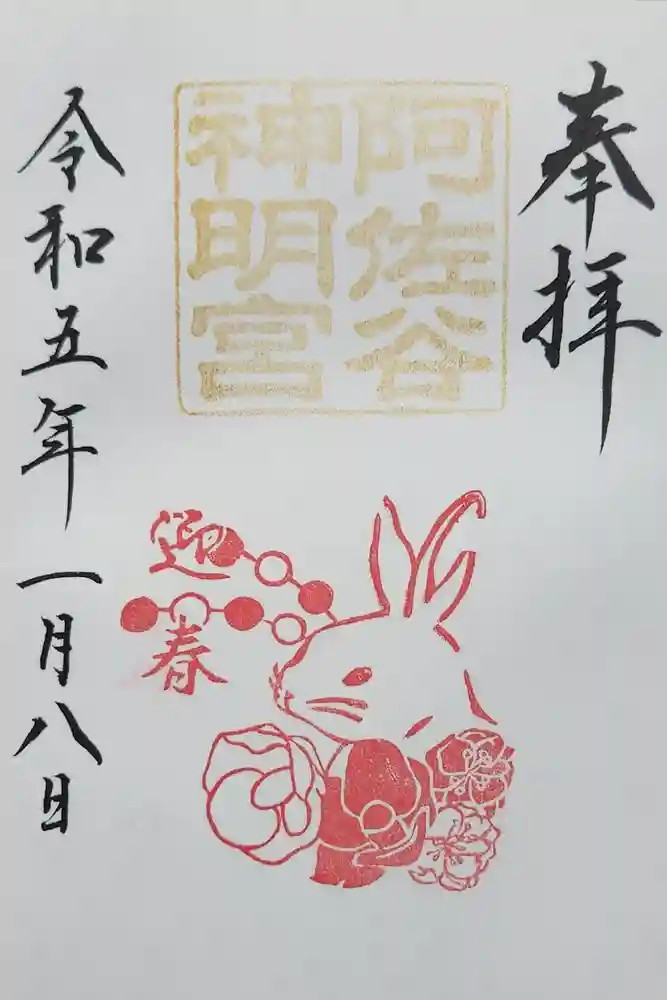 奉拝
阿佐谷
神明宮
迎
春
令和五年一月八日